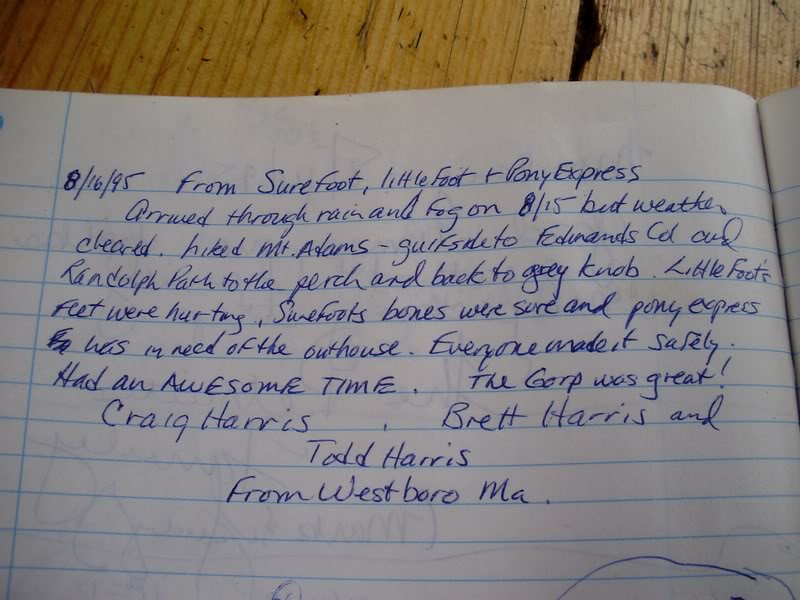 8/16/95 From Surefoot, Littlefoot + Pony Express
Arrived through rain and fog on 8/15 but weather
cleared. hiked Mt. Adams - to Edmands Col and
Randolph Path to the perch and back to grey knob. LittleFoot's
Feet were hurting, Surefoots bones were sore and pony express
was in need of the outhouse. Everyone made it safely.
Had an AWESOME TIME. The Gorp was great!
Craig Harris , Brett Harris and
Todd Harris
From Westboro Ma.